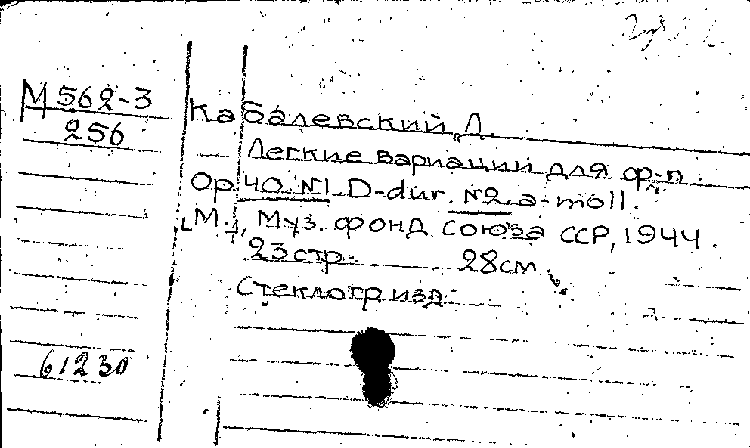 М 562-3
256
Кабалевский, Д.
Легкие вариации для ф-п.
Ор. 40. №1. D-dur. №2. a-moll.
М., Муз. фонд союза ССР, 1944.
23 стр. 28 см.
Стеклогр. изд.
61230